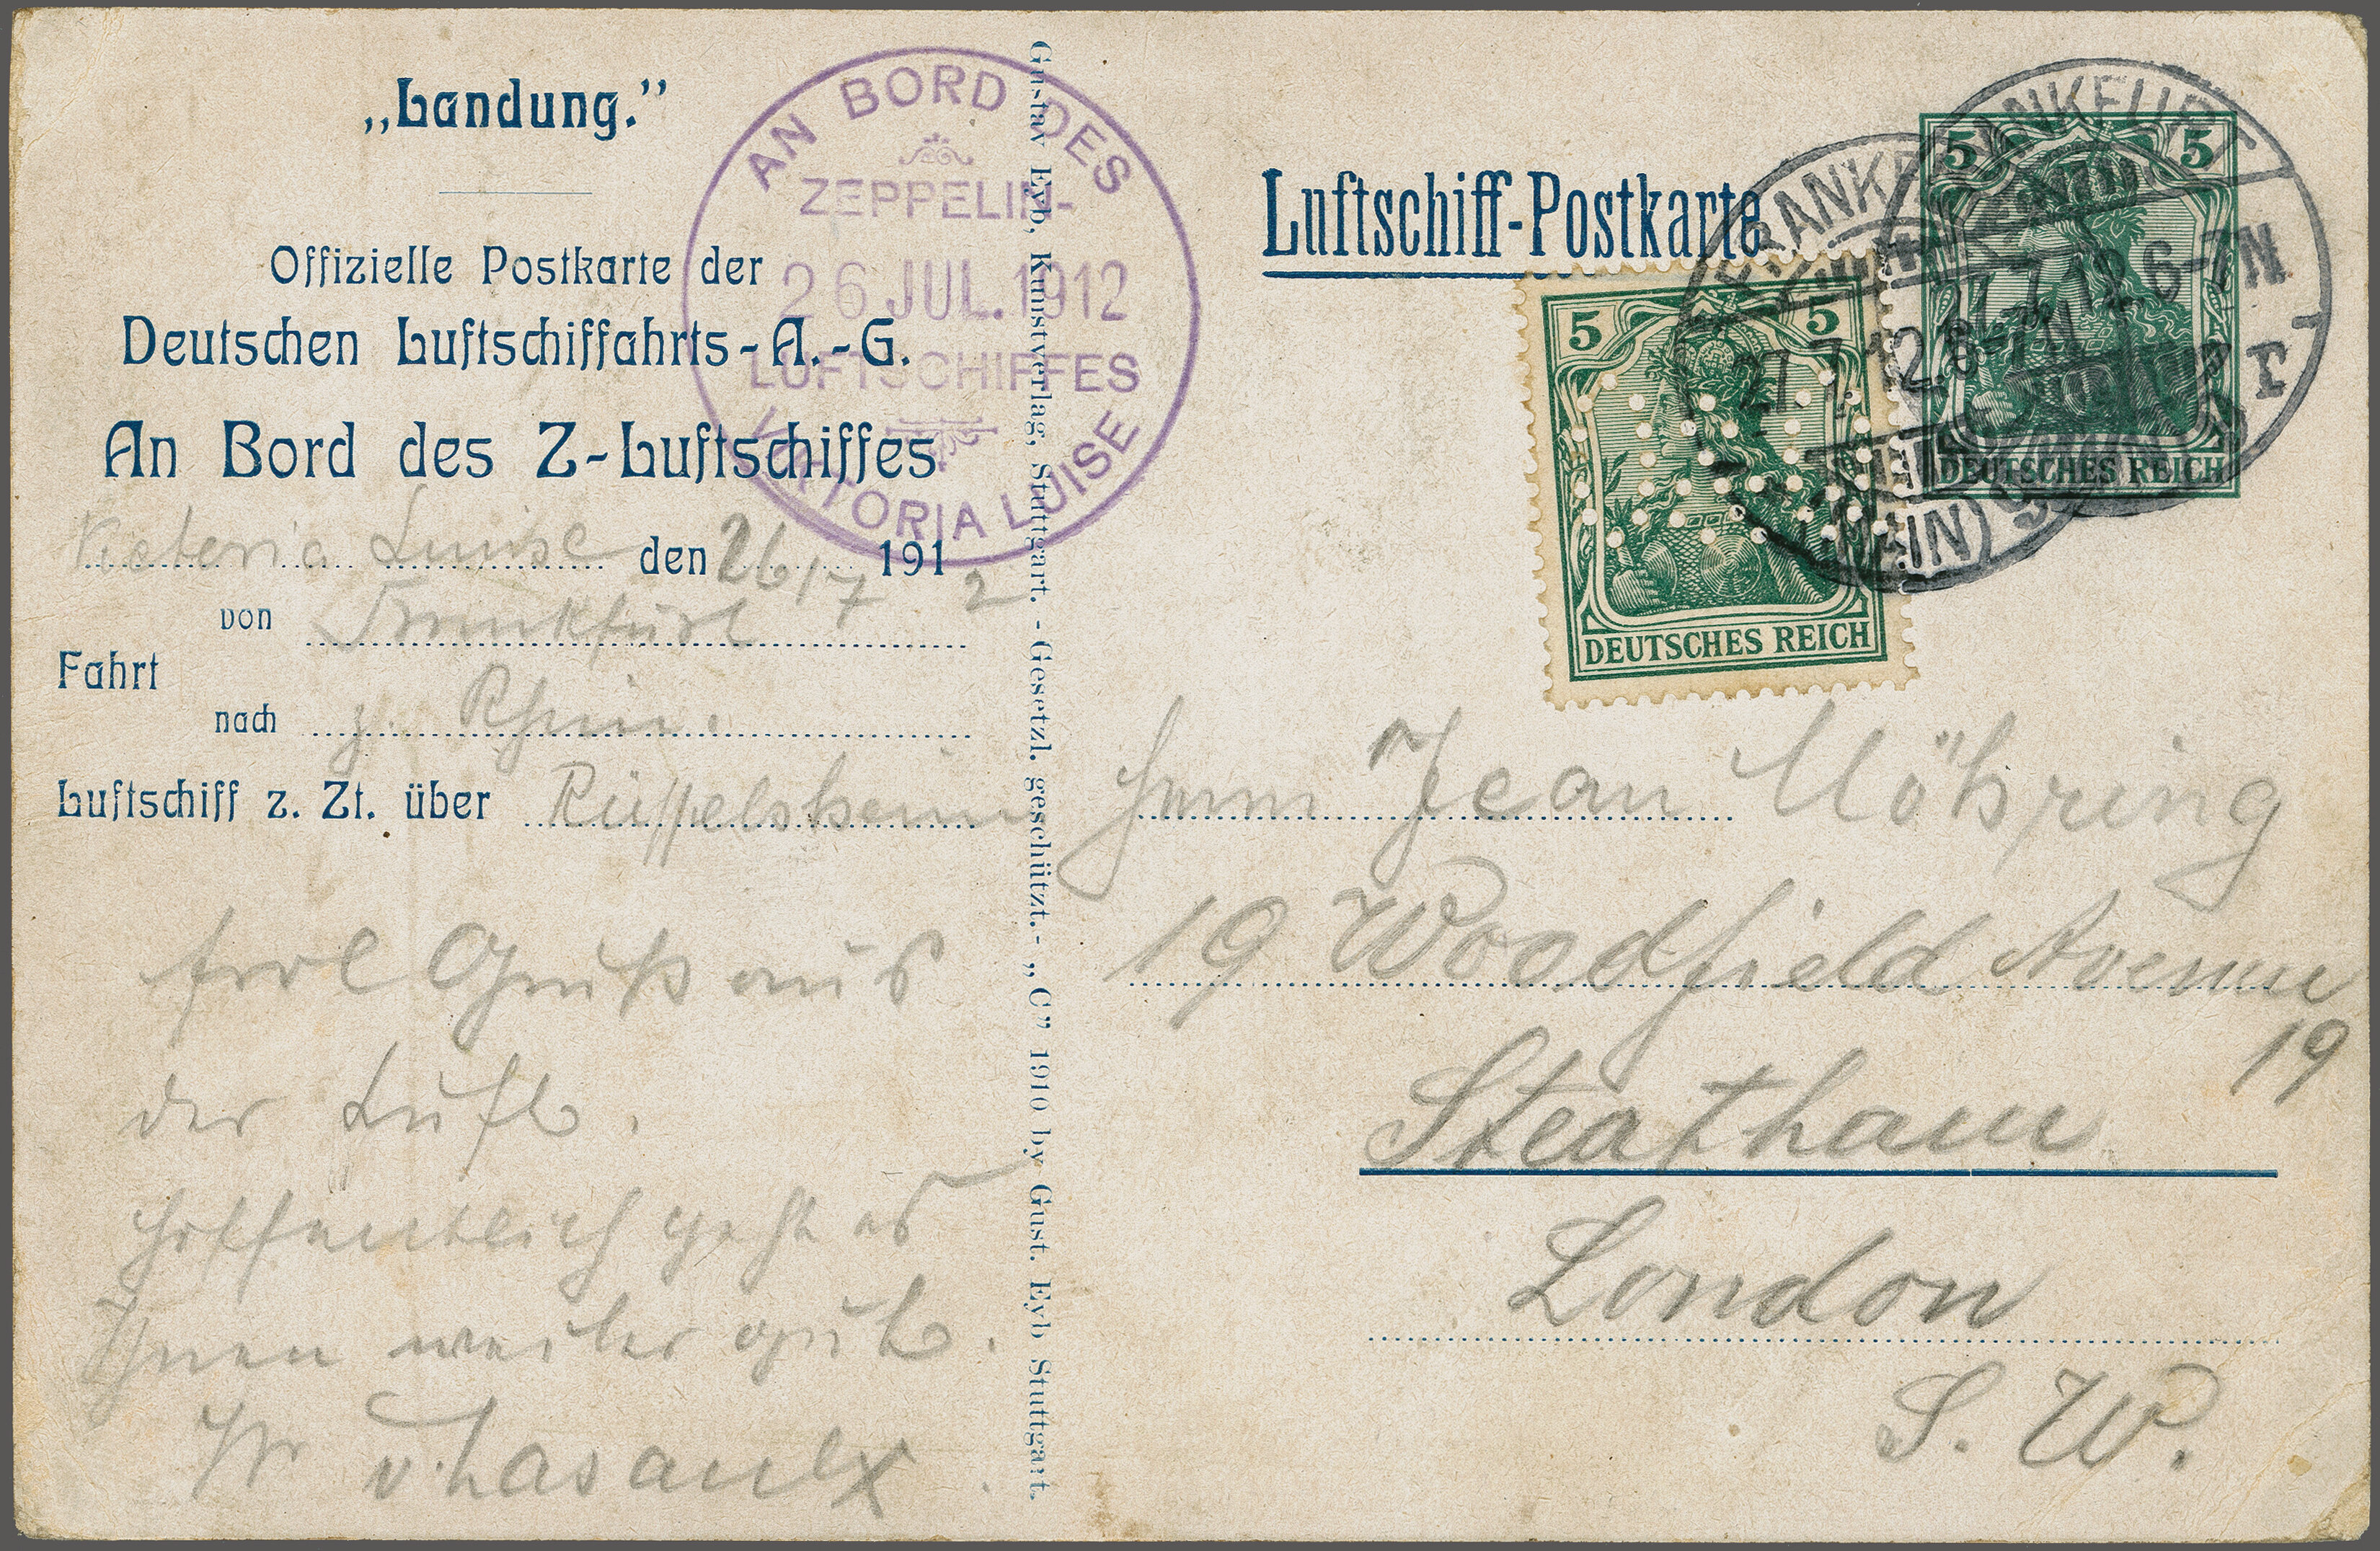 „Landung."
Offizielle Postkarte der
Deutschen Luftschiffahrts-A.-G.
An Bord des Z-Luftschiffes
Victoria Luise den 26/7 1912
von Frankfurt
Fahrt
nach z. Rhein.
Luftschiff z. Zt. über Rüsselsheim
Gruß aus
der Luft.
hoffentlich geht es
Ihnen weiter gut.
AN BORD DES
ZEPPELIN-
26 JUL. 1912
LUFTSCHIFFES
VIKTORIA LUISE
Gustav Eyb, Kunstverlag, Stuttgart. - Gesetzl. geschützt. - „C" 1910 by Gust. Eyb Stuttgart.
Luftschiff-Postkarte
5 5
DEUTSCHES REICH
5 5
DEUTSCHES REICH
FRANKFURT
27.7.12.6-7N
(MAIN)
FRANKFURT
27.7.12.6-7N
Herrn Jean Möhring
19 Woodfield Avenue
19
Steatham
London
S. W.